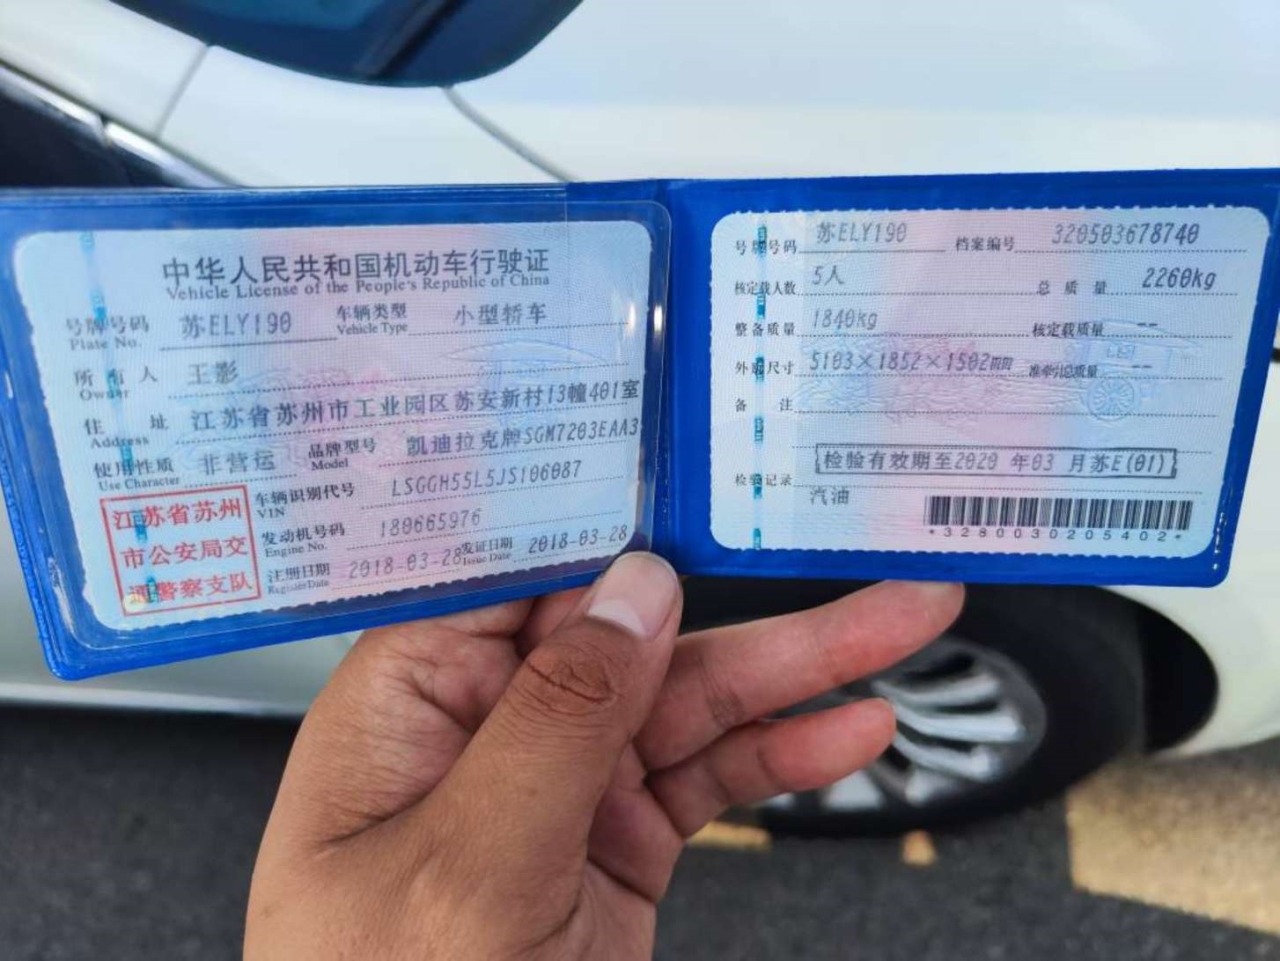 中华人民共和国机动车行驶证
Vehicle License of the People's Republic of China
号牌号码 苏ELY190 车辆类型 小型轿车
Plate No. Vehicle Type
所有人 王影
Owner
住址 江苏省苏州市工业园区苏安新村13幢401室
Address
使用性质 非营运 品牌型号 凯迪拉克牌SGM7203EAA3
Use Character Model
江苏省苏州
市公安局交
通警察支队
车辆识别代号 LSGGH55L5JS106087
VIN
发动机号码 180665976
Engine No.
注册日期 2018-03-28 发证日期 2018-03-28
Register Date Issue Date
号牌号码 苏ELY190 档案编号 320503678740
核定载人数 5人 总质量 2260kg
整备质量 1840kg 核定载质量 --
外廓尺寸 5103×1852×1502mm 准牵引总质量 --
备注
检验有效期至2020 年03 月苏E(01)
检验记录
汽油
*3280030205402*